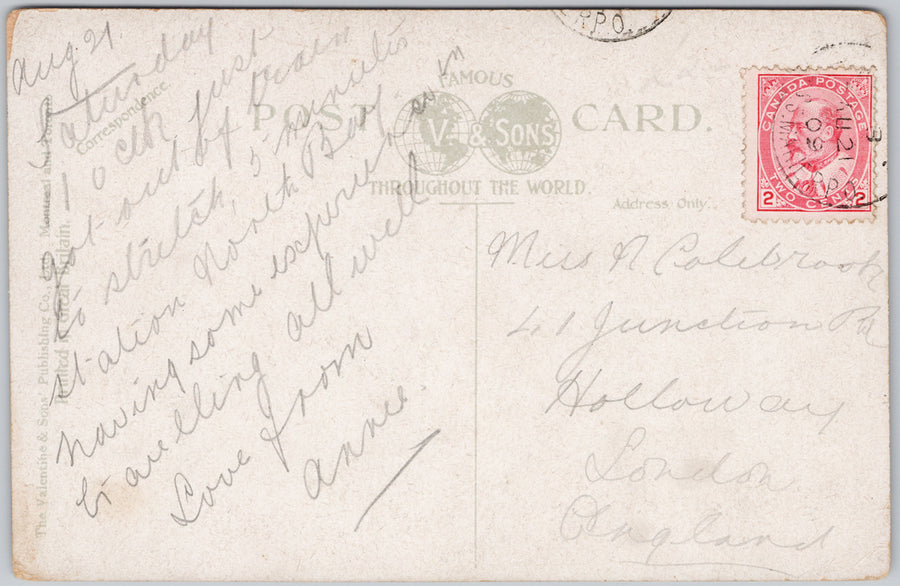 Aug. 21.
Saturday
1 o clk just
got out of train
to stretch, 5 minutes
station North Bay
having some experiences in
travelling all well
Love from
Annie.
Correspondence
The Valentine & Sons Publishing Co., Ltd., Montreal and Toronto
Printed in Great Britain.
FAMOUS
POST CARD.
V. & SONS
THROUGHOUT THE WORLD.
Address Only.
Miss N Colebrook
41 Junction Rd
Holloway
London
England
R.P.O.
CANADA POSTAGE
2 TWO CENTS 2
AU 21
09